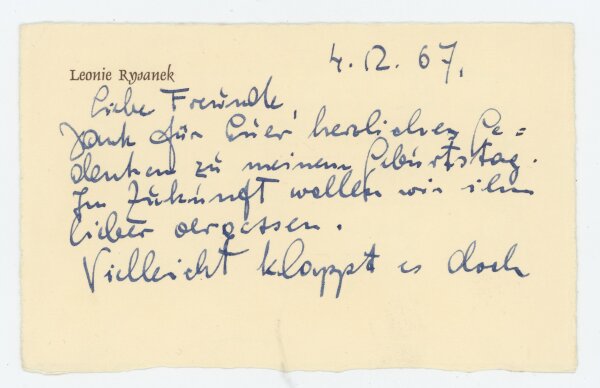 4. 12. 67.
Leonie Rysanek
Liebe Freunde,
Dank für Euer herzliches Ge=
denken zu meinem Geburtstag.
In Zukunft wollen wir ihn
lieber vergessen.
Vielleicht klappt es doch